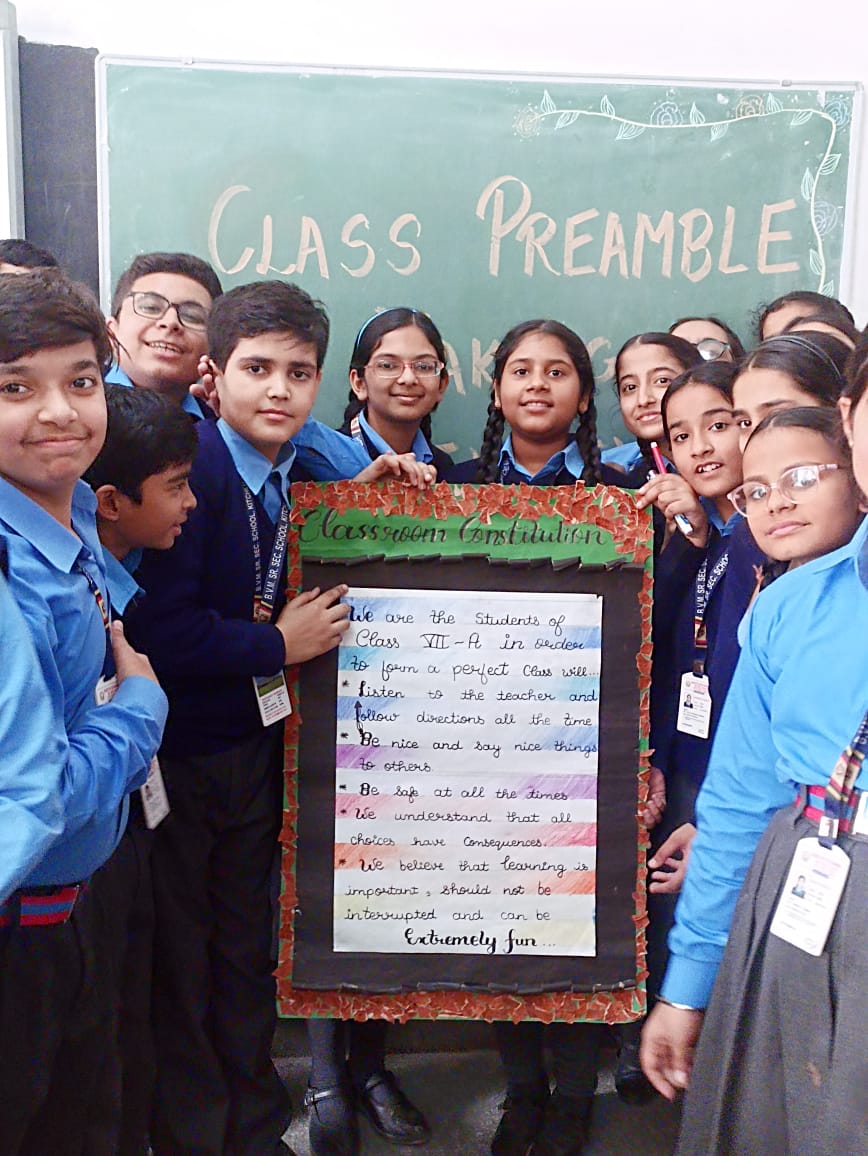 CLASS PREAMBLE
Classroom Constitution
We are the Students of
Class VII-A in order
to form a perfect Class will...
* Listen to the teacher and
follow directions all the time
* Be nice and say nice things
to others.
* Be safe at all the times
* We understand that all
choices have consequences.
* We believe that learning is
important, should not be
interrupted and can be
Extremely fun...
B.V.M. SR. SEC. SCHOOL,